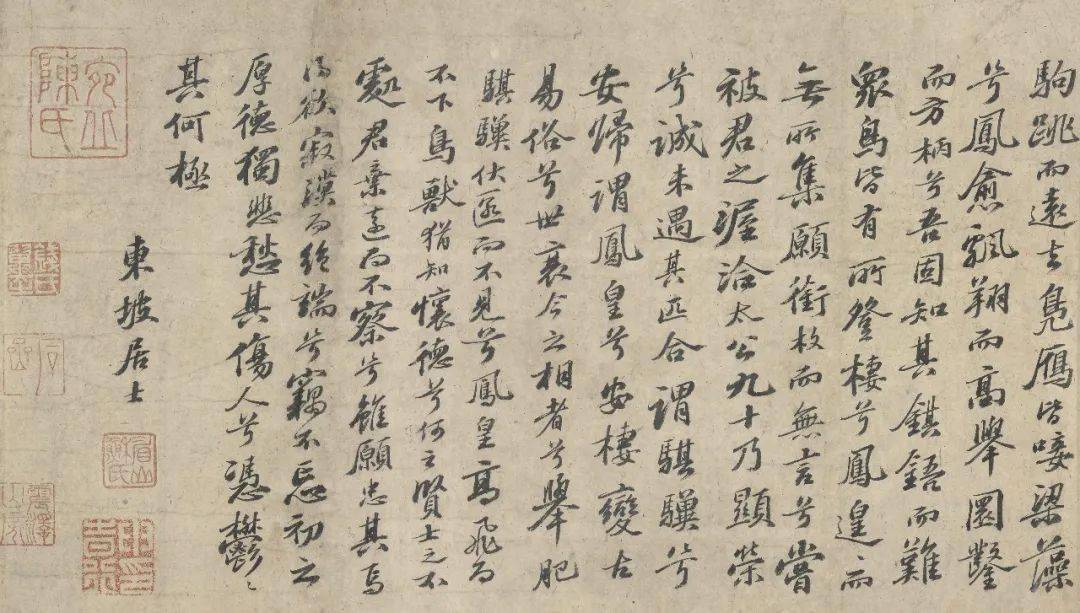 駒跳而遠去鳧鴈皆唼梁藻
兮鳳愈飄翔而高舉圜鑿
而方枘兮吾固知其鉏鋙而難
衆鳥皆有所登棲兮鳳遑〻而
無所集願銜枚而無言兮嘗
被君之渥洽太公九十乃顯榮
兮誠未遇其匹合謂騏驥兮
安歸謂鳳皇兮安棲變古
易俗兮世衰今之相者兮舉肥
騏驥伏匿而不見兮鳳皇高飛而
不下鳥獸猶知懷德兮何云賢士之不
處君棄遠而不察兮雖願忠其焉
得欲寂漠而絕端兮竊不忘初之
厚德獨悲愁其傷人兮馮鬱〻
其何極
東坡居士
宛丘
陳氏
眉山
蘇氏